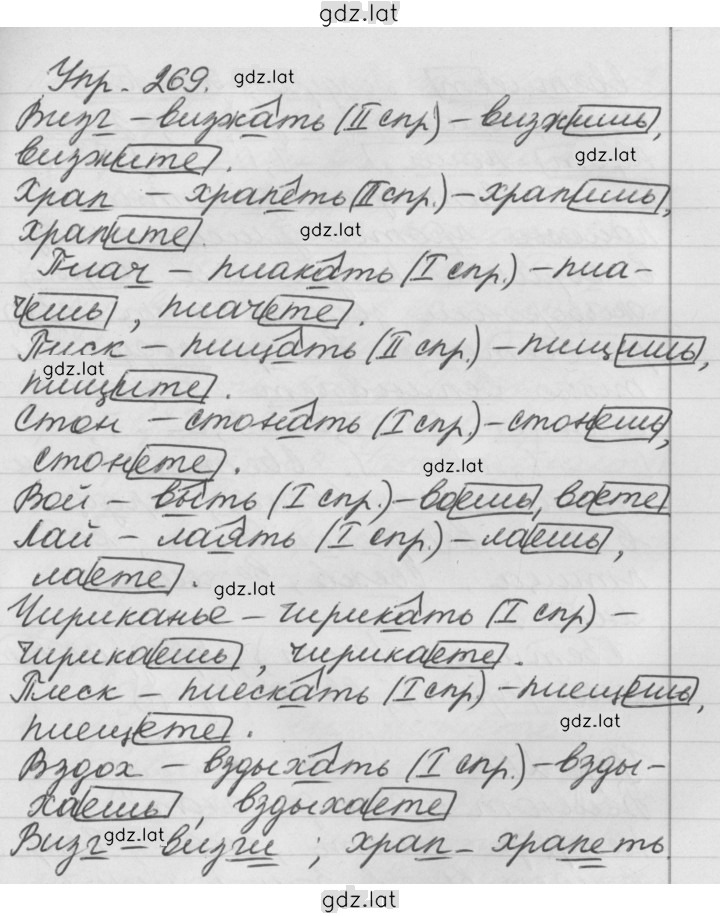 gdz.lat
Упр. 269. gdz.lat
Визг – визжать (II спр.) – визжишь,
визжите. gdz.lat
Храп – храпеть (II спр.) – храпишь,
храпите gdz.lat
Плач – плакать (I спр.) – пла-
чешь, плачете.
Писк – пищать (II спр.) – пищишь,
gdz.lat
пищите.
Стон – стонать (I спр.) – стонешь,
стонете. gdz.lat
Вой – выть (I спр.) – воешь, воете
Лай – лаять (I спр.) – лаешь,
лаете gdz.lat
Чириканье – чирикать (I спр) –
чирикаешь, чирикаете.
Плеск – плескать (I спр) – плещешь,
плещете. gdz.lat
Вздох – вздыхать (I спр.) – взды-
хаешь, вздыхаете
gdz.lat
Визг – визги; храп – храпеть
gdz.lat